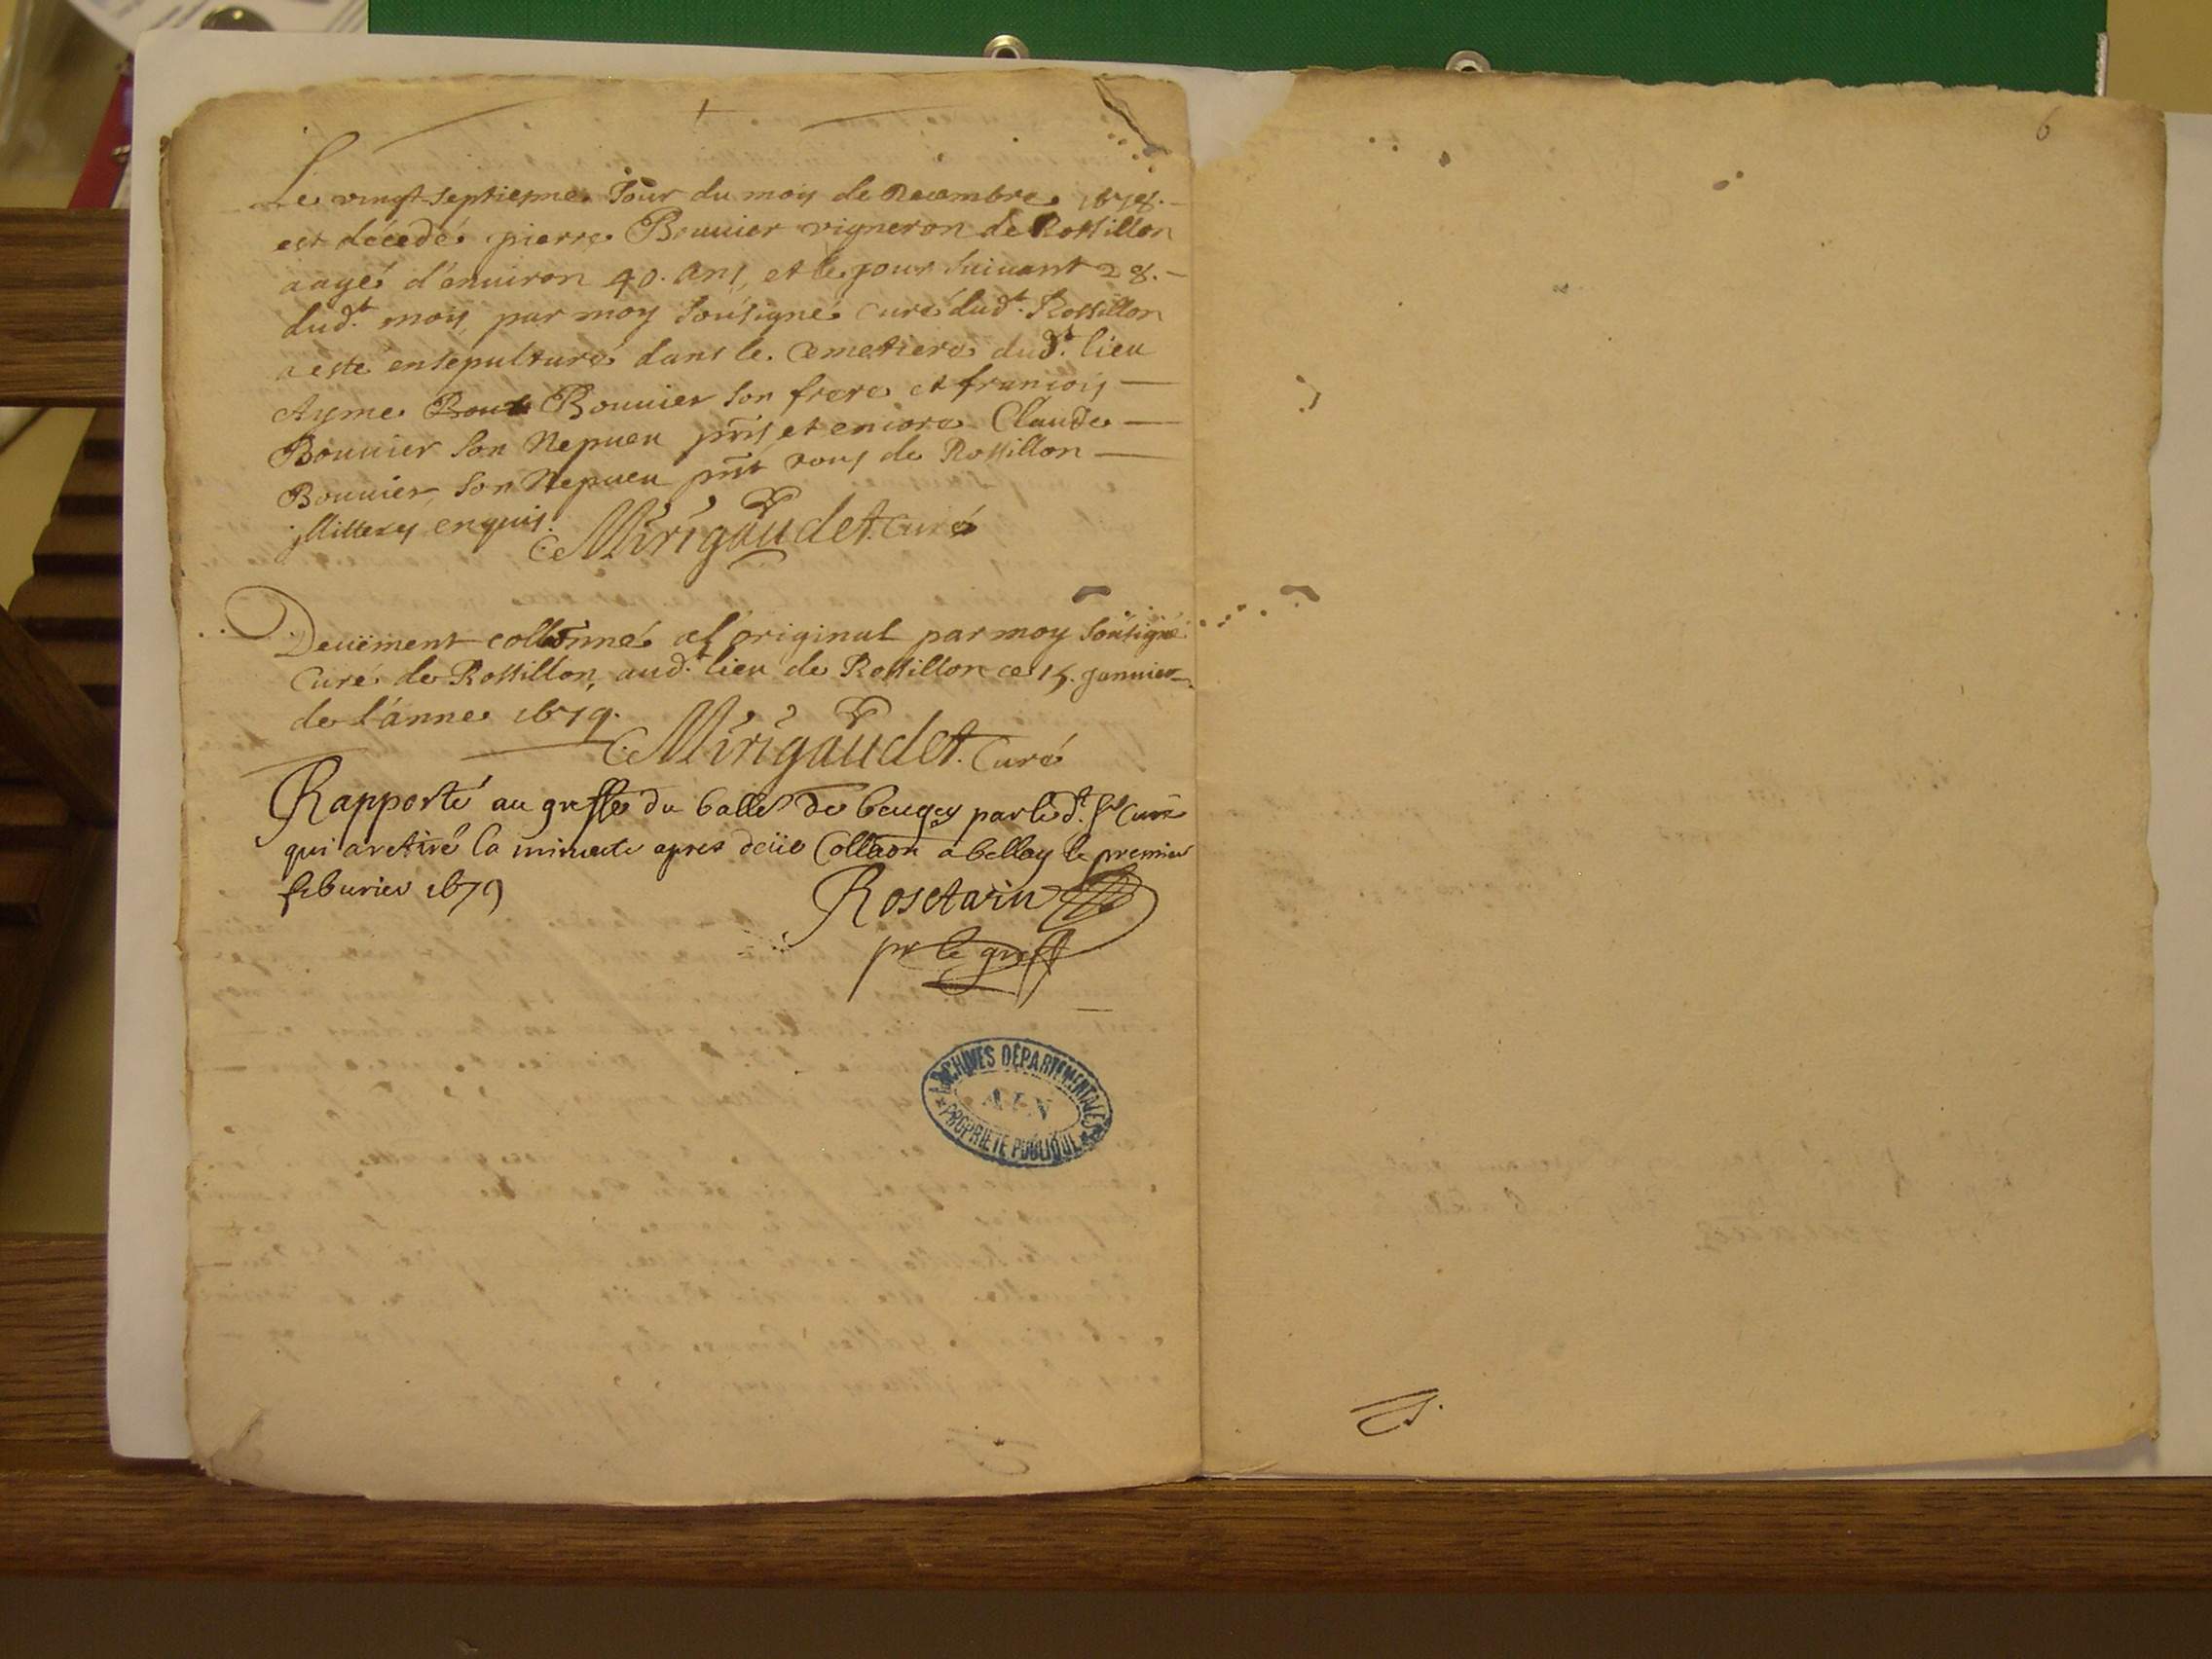 Le vingt septieme Jour du moy de Decembre 1678.
est décedé pierre Bouuier vigneron de Rossillon
aagé d'enuiron 40. ans, et le jour suiuant 28.
dud.t moy par moy soúsigné curé dud.t Rossillon
a esté ensepulturé dans le Cemetiere dud.t lieu
Ayme Bouuier son frere et françois
Bouuier son Nepueu pñs et encore Claude
Bouuier son Nepueu pñt tous de Rossillon
jllitterés enquis. Mirigaudet. Curé
Deuëment colloñné a l'original par moy soúsigné
Curé de Rossillon, aud.t lieu de Rossillon ce 15. Januier
de l'anneé 1679.
Mirigaudet. Curé
Rapporté au greffe du balle de beugey par led.t Sr Curé
qui a retiré la minute apres deüe Collaon a belley le premier
feburier 1679
Rosetain
pr le greff
ARCHIVES DÉPARTEMENTALES
AIN
PROPRIÉTÉ PUBLIQUE
6